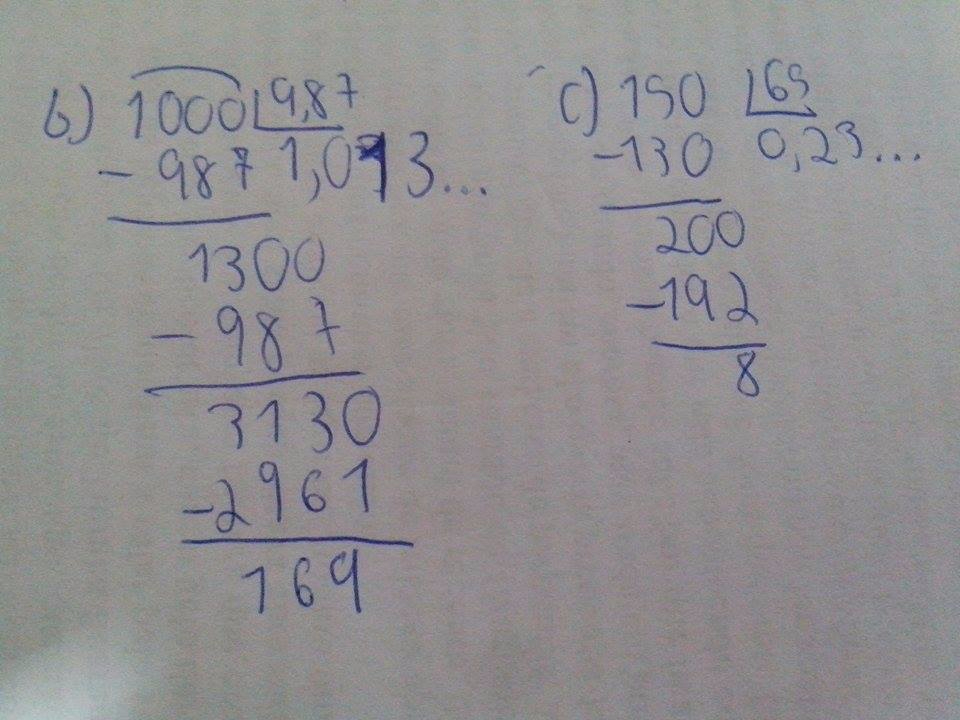 b) 1000 9,87
- 987 1,013...
1300
- 987
3130
- 2961
169
c) 150 65
- 130 0,23...
200
- 192
8